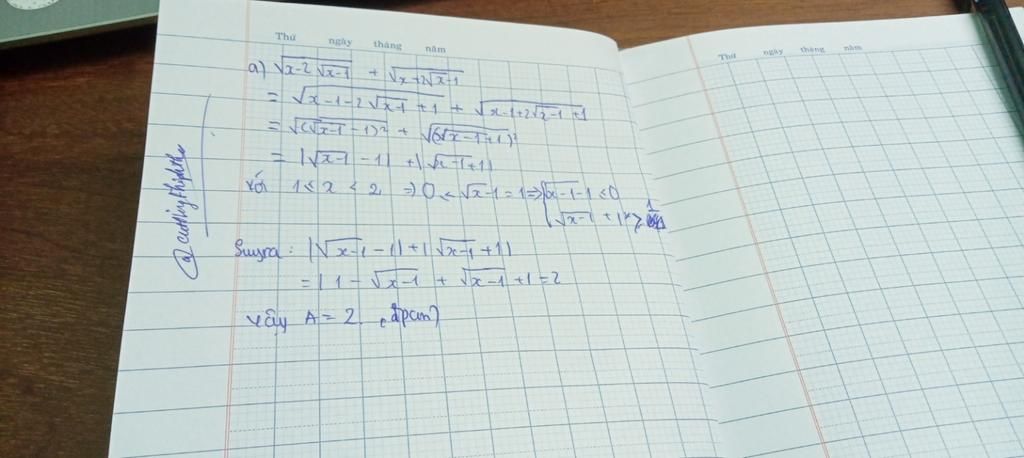 Thứ ngày tháng năm
a) √(x-2√(x-1)) + √(x+2√(x-1))
= √(x-1-2√(x-1)+1) + √(x-1+2√(x-1)+1)
= √((√(x-1)-1)²) + √((√(x-1)+1)²)
= |√(x-1) -1| + |√(x-1)+1|
với 1 ≤ x < 2 ⇒ 0 ≤ √x-1 = 1 ⇒ √(x-1)-1 ≤ 0
√(x-1) + 1 ≥ 1
Suy ra : |√(x-1) -1| + |√(x-1)+1|
= | 1 - √(x-1) + √(x-1) +1 = 2
vậy A = 2 (đpcm)
Thứ ngày tháng năm